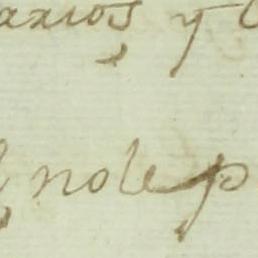 axios y
nole p